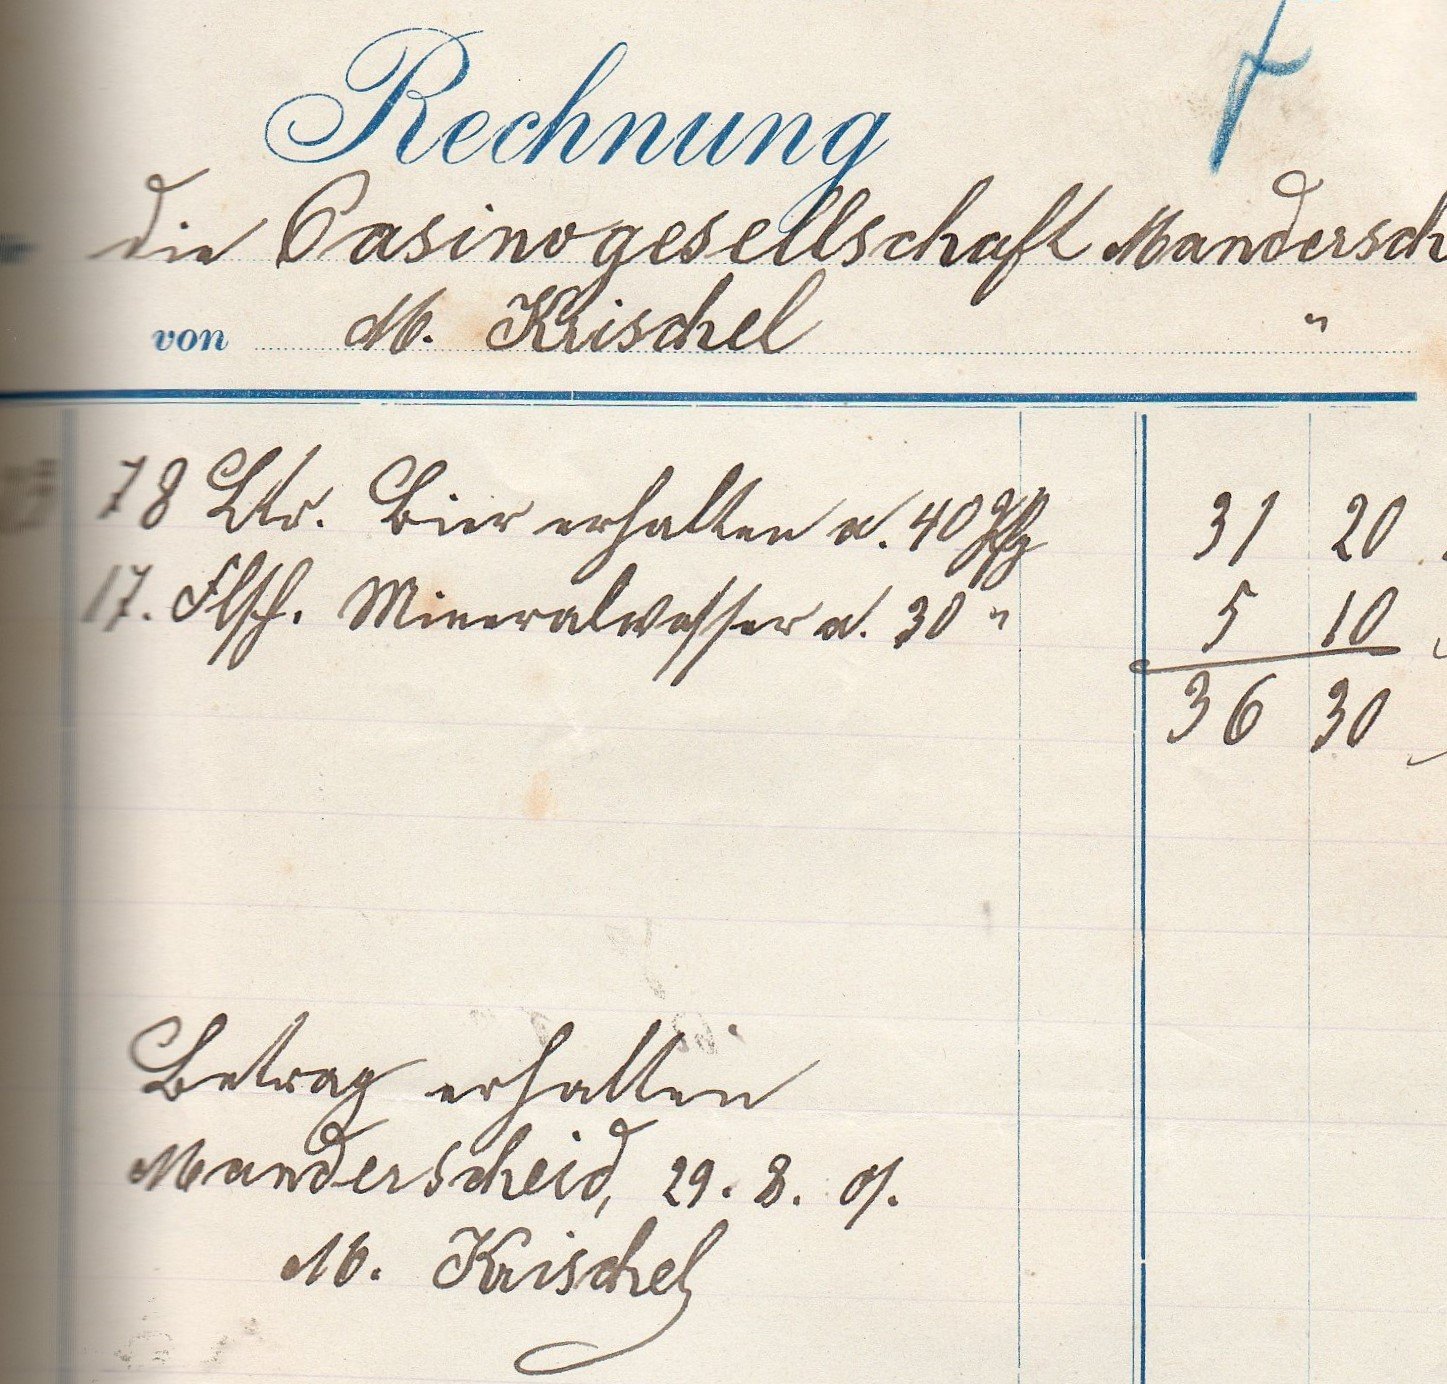 7
Rechnung
die Casinogesellschaft Mandersch
von M. Krischel "
78 Ltr. Bier erhalten a. 40 Pfg 31 20
17. Flsch. Mineralwasser a. 30 " 5 10
36 30
Betrag erhalten
Manderscheid, 29. 8. 01.
M. Krischel